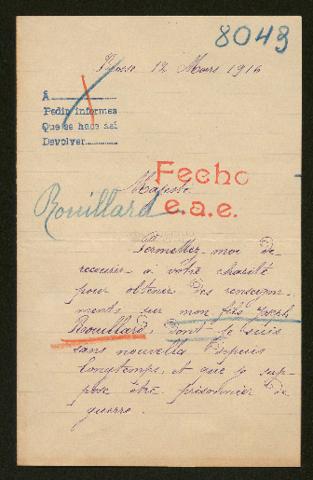 8049
12 Mars 1916
A
Pedir informes
Que se hace asi
Devolver
Fecho
e.a.e.
Majesté
Rouillard
Permettez-moi de
recourir à votre charité
pour obtenir des renseigne-
ments sur mon fils Joseph
Rouillard, dont je suis
sans nouvelles depuis
longtemps, et que je sup-
pose être prisonnier de
guerre.